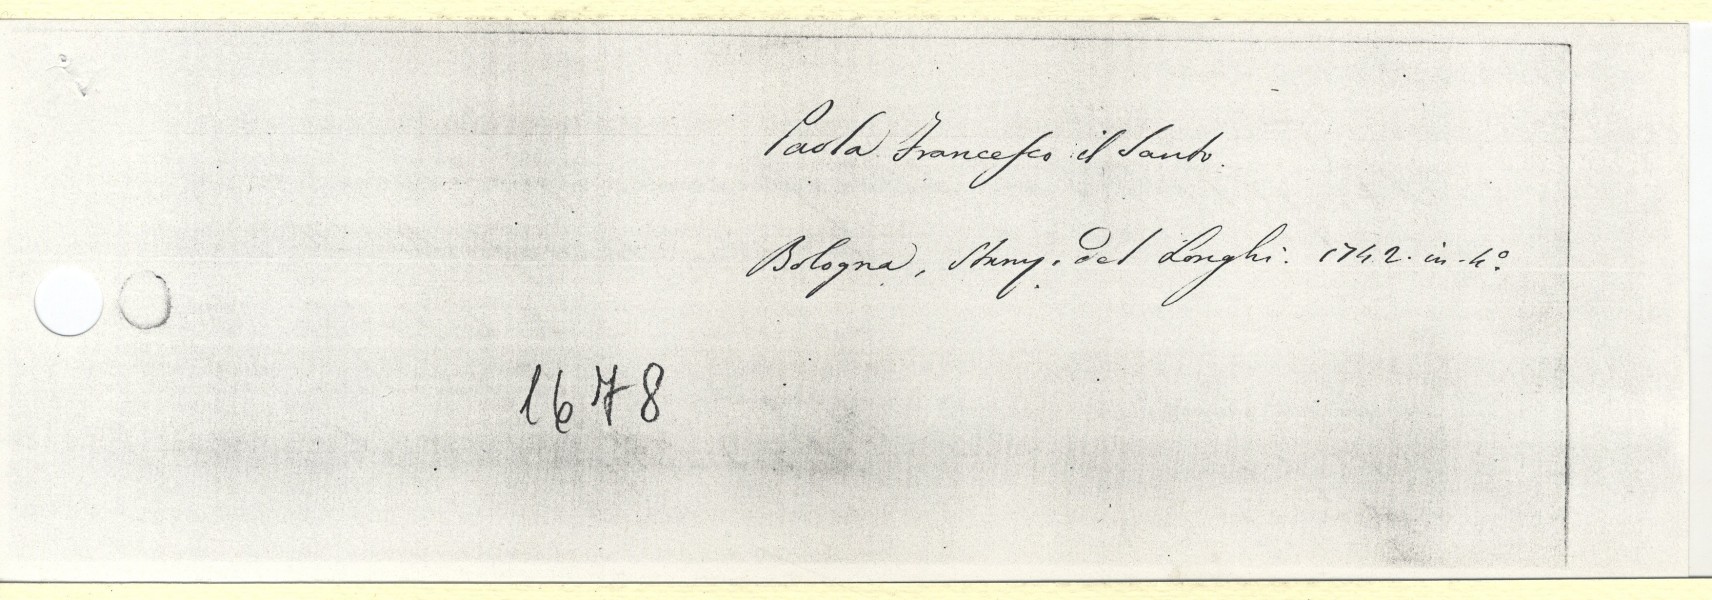 Paola Francesco il Santo.
Bologna, Stamp. del Longhi. 1742. in-4º.
1678